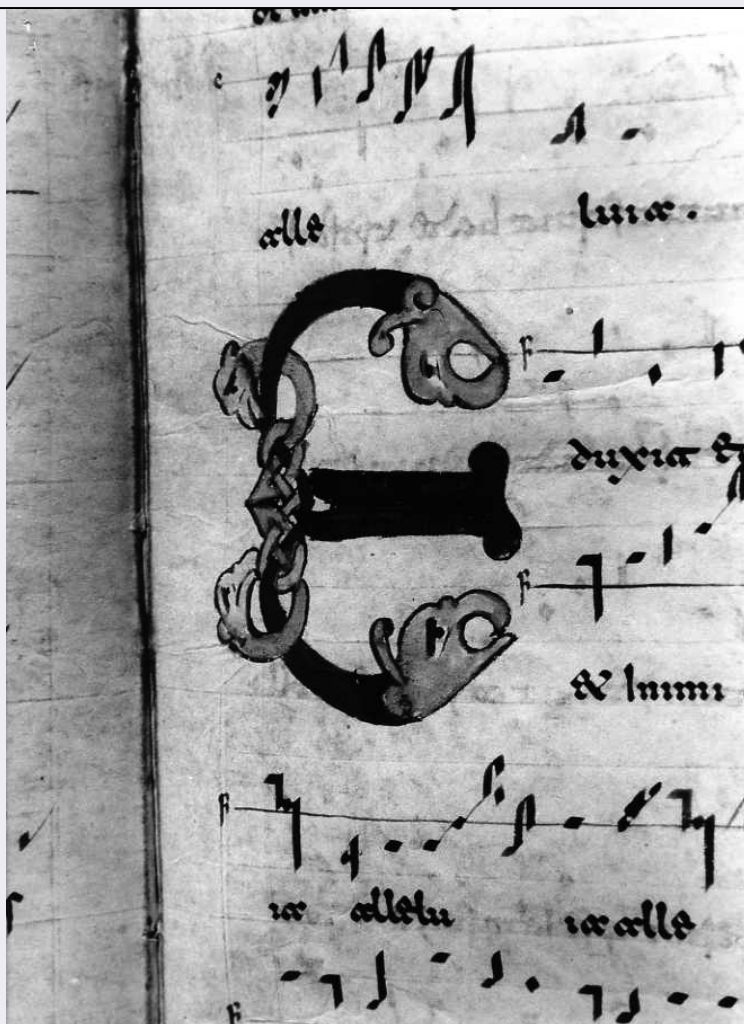 alle luia.
E duxit
& inimi
ia allelu ia alle